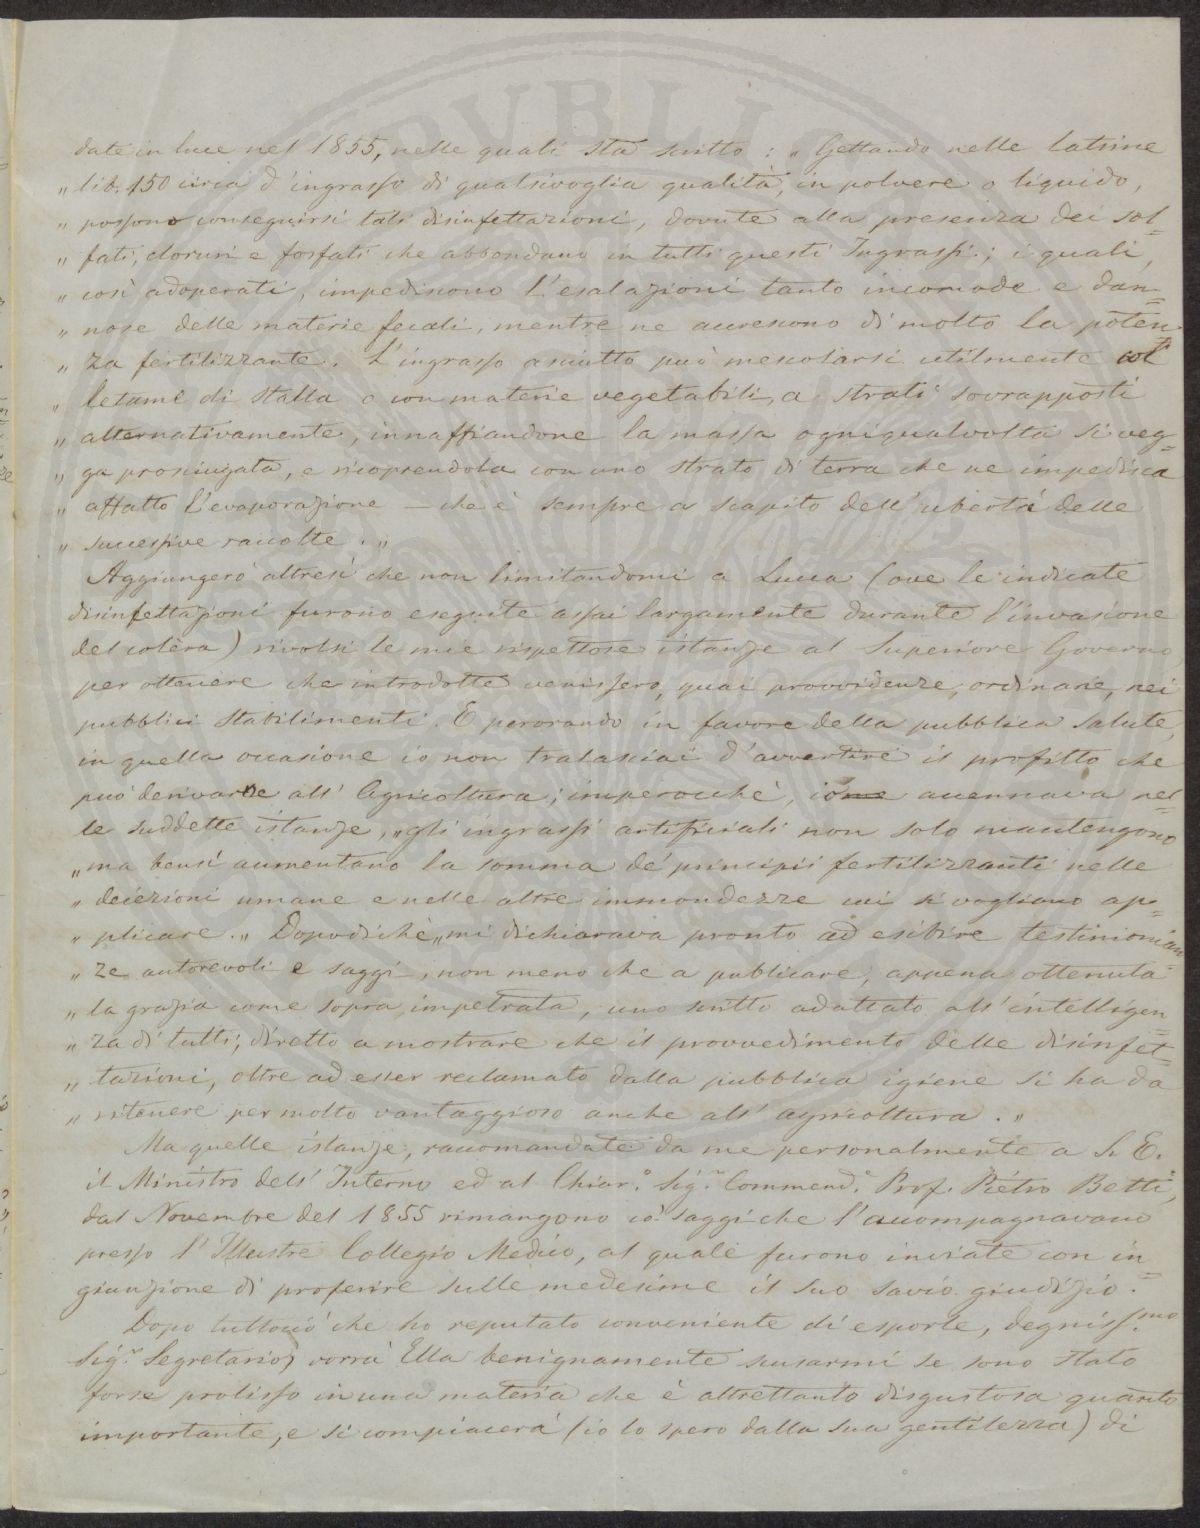 date in luce nel 1855, nelle quali sta scritto : „ Gettando nelle latrine
„ lib. 150 circa d'ingrasso di qualsivoglia qualità, in polvere o liquido,
„ possono conseguirsi tali disinfettazioni, dovute alla presenza dei sol=
„ fati, cloruri e fosfati che abbondano in tutti questi Ingrassi ; i quali,
„ così adoperati, impediscono l'esalazioni tanto incomode e dan=
„ nose delle materie fecali, mentre ne accrescono di molto la poten=
„ za fertilizzante. L'ingrasso asciutto può mescolarsi utilmente col
„ letame di stalla o con materie vegetabili, a strati sovrapposti
„ alternativamente, innaffiandone la massa ogniqualvolta si veg=
„ ga prosciugata, e ricoprendola con uno strato di terra che ne impedisca
„ affatto l'evaporazione — che è sempre a scapito dell'ubertà delle
„ successive raccolte . „
Aggiungerò altresì che non limitandomi a Lucca (ove le indicate
disinfettazioni furono eseguite assai largamente durante l'invasione
del colèra) rivolsi le mie rispettose istanze al Superiore Governo,
per ottenere che introdotte venissero, quai provvidenze, ordinarie, nei
pubblici stabilimenti. E perorando in favore della pubblica salute,
in quella occasione io non tralasciai d'avvertire il profitto che
può derivarne all'Agricoltura ; imperocchè, io accennava nel=
le suddette istanze, „ gli ingrassi artificiali non solo mantengono
„ ma bensì aumentano la somma de' principii fertilizzanti nelle
„ deiezioni umane e nelle altre immondezze cui si vogliano ap=
„ plicare. „ Dopodichè „ mi dichiarava pronto ad esibire testimonian=
„ ze autorevoli e saggi, non meno che a publicare, appena ottenuta
„ la grazia come sopra impetrata, uno scritto adattato all'intelligen=
„ za di tutti, diretto a mostrare che il provvedimento delle disinfet=
„ tazioni, oltre ad esser reclamato dalla pubblica igiene si ha da
„ ritenere per molto vantaggioso anche all'agricoltura . „
Ma quelle istanze, raccomandate da me personalmente a S. E.
il Ministro dell'Interno ed al Chiar.º Sig.r Commend.e Prof. Pietro Betti,
dal Novembre del 1855 rimangono co' saggi che l'accompagnavano
presso l'Illustre Collegio Medico, al quale furono inviate con in=
giunzione di proferire sulle medesime il suo savio giudizio.
Dopo tuttociò che ho reputato conveniente di esporle, degniss.mo
Sig.r Segretario, vorrà Ella benignamente scusarmi se sono stato
forse prolisso in una materia che è altrettanto disgustosa quanto
importante, e si compiacerà (io lo spero dalla sua gentilezza) di